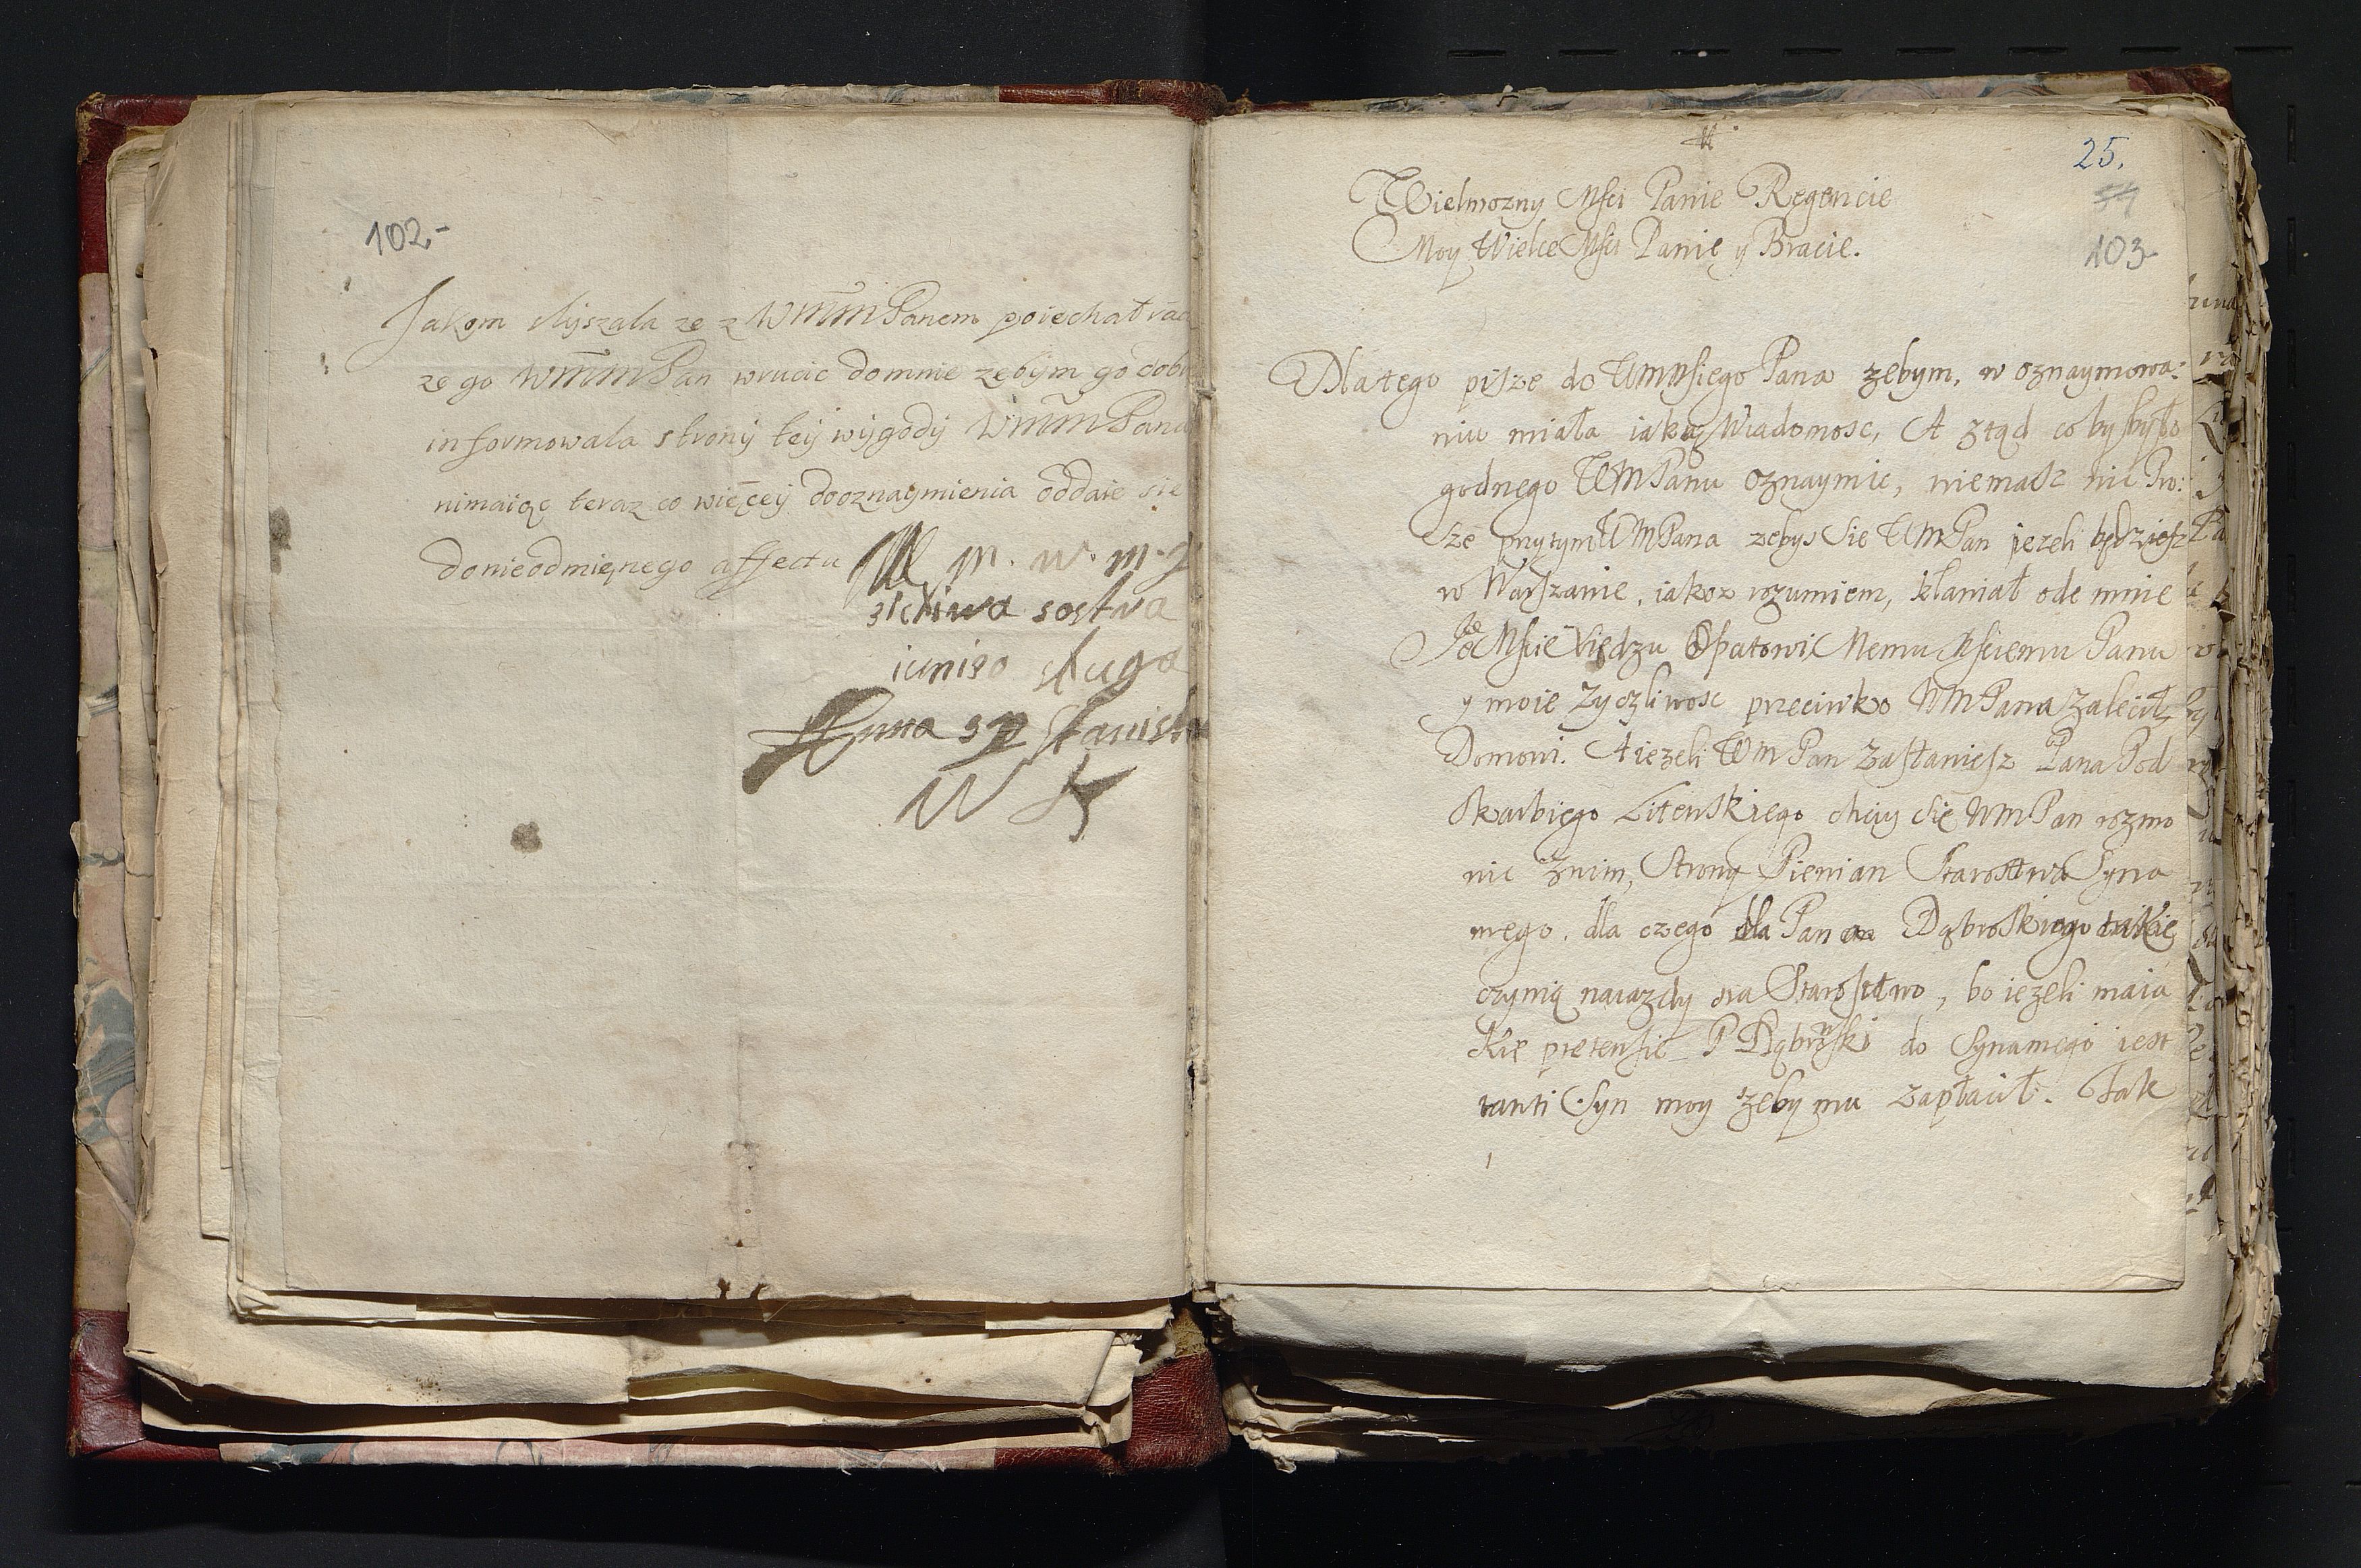 102-
Jakom slyszala ze z WMMPanem poiechał
ze go WMMPan wrucic domnie zebym go
informowala strony tey wygody WMMPana
nimaiąc teraz co więcey dooznaymienia oddaie się
donieodmięnego affectu W m. w. m.
sostra
sługa
Anna
25.
54
103-
Wielmozny Msci Panie Regencie
Moy Wielce Msci Panie y Bracie.
Dlatego pisze do WMMsiego Pana zebym, w oznaymowa:
niu miała iaką Wiadomosc, A ztąd co by było
godnego WMPanu oznaymic, niemasz nic Pro:
sze przytym WMPana zebys sie WMPan jezeli będziesz
w Warszawie, iakoz rozumiem, kłaniał ode mnie
Je Mscie Xiędzu Opatowi Memu Msciemu Panu
y moie zyczliwosc przeciwko WMPana zalecił
Domowi. A iezeli WMPan zastaniesz Pana Pod
skarbiego Litewskiego chciey się WMPan rozmo
wic znim, Strony Pienian Starostwa Syna
mego, dla czego dla Pana Dąbroskiego takie
czynią naiazdy na Starostwo, bo iezeli maia
kie pretensie P Dąbrowski do Synamego iest
tanti Syn moy zeby mu zapłacił. Tak